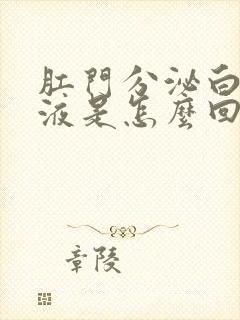 肛門分泌白
液是怎麼回
章陵